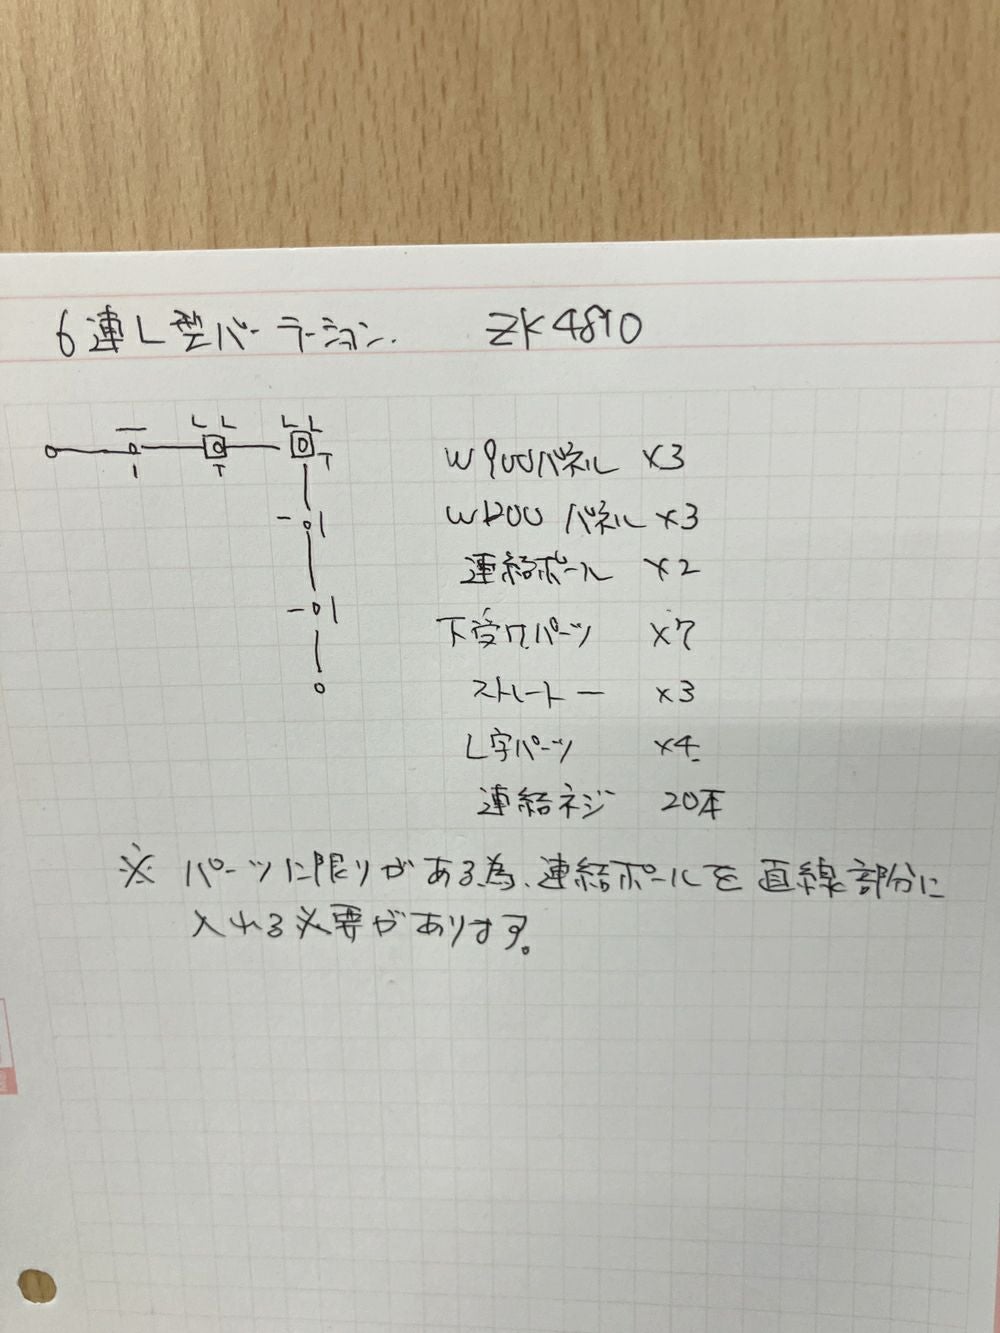 6連L型パーテーション. ZK4810
L L L L
T T
W900パネル ×3
W1200パネル ×3
連結ポール ×2
下受けパーツ ×7
ストレート ー ×3
L字パーツ ×4
連結ネジ 20本
※ パーツに限りがある為、連結ポールを直線部分に
入れる必要があります。